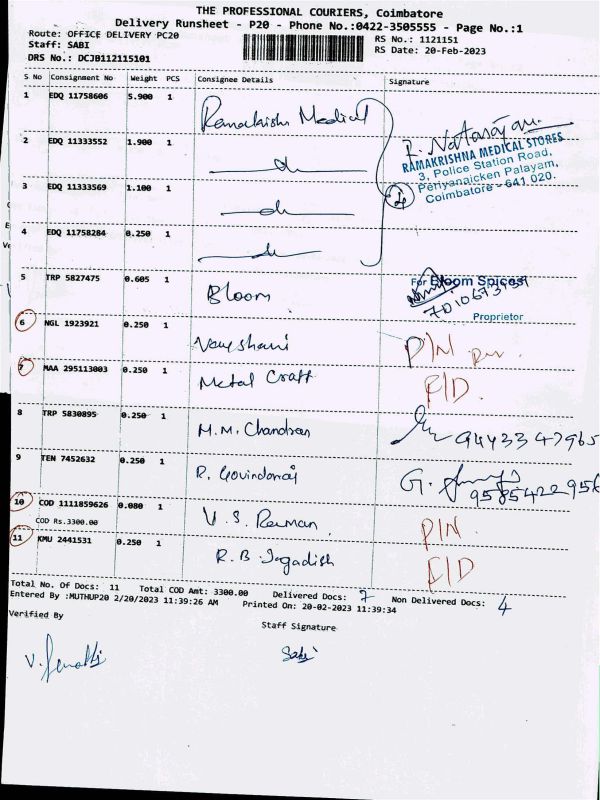 THE PROFESSIONAL COURIERS, Coimbatore
Delivery Runsheet - P20 - Phone No.:0422-3505555 - Page No.:1
Route: OFFICE DELIVERY PC20
RS No.: 1121151
Staff: SABI
RS Date: 20-Feb-2023
DRS No.: DCJB112115101
S No Consignment No Weight PCS Consignee Details Signature
1 EDQ 11758606 5.900 1 Ramakrishn Medical
2 EDQ 11333552 1.900 1 do
R. Natarajan
RAMAKRISHNA MEDICAL STORES
3, Police Station Road,
Periyanaicken Palayam,
Coimbatore - 641 020.
3 EDQ 11333569 1.100 1 do
4
4 EDQ 11758284 0.250 1 do
5 TRP 5827475 0.605 1 Bloom
For Bloom Spices
Proprietor
6 NGL 1923921 0.250 1 P/N
7 MAA 295113003 0.250 1 Metal Craft F/D.
8 TRP 5830895 0.250 1 M.M. Chandran 9443347965
9 TEN 7452632 0.250 1 R. Govindaraj G. 9585422956
10 COD 1111859626 0.080 1 V.S. Raman P/N
COD Rs.3300.00
11 KMU 2441531 0.250 1 R.B. Jagadish F/D
Total No. Of Docs: 11 Total COD Amt: 3300.00 Delivered Docs: 7 Non Delivered Docs: 4
Entered By :MUTHUP20 2/20/2023 11:39:26 AM Printed On: 20-02-2023 11:39:34
Verified By
Staff Signature
Sabi